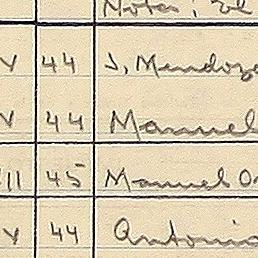 Notas:
V 44 J. Mendoza
V 44 Manuel
VII 45 Manuel O
V 44 Antonio